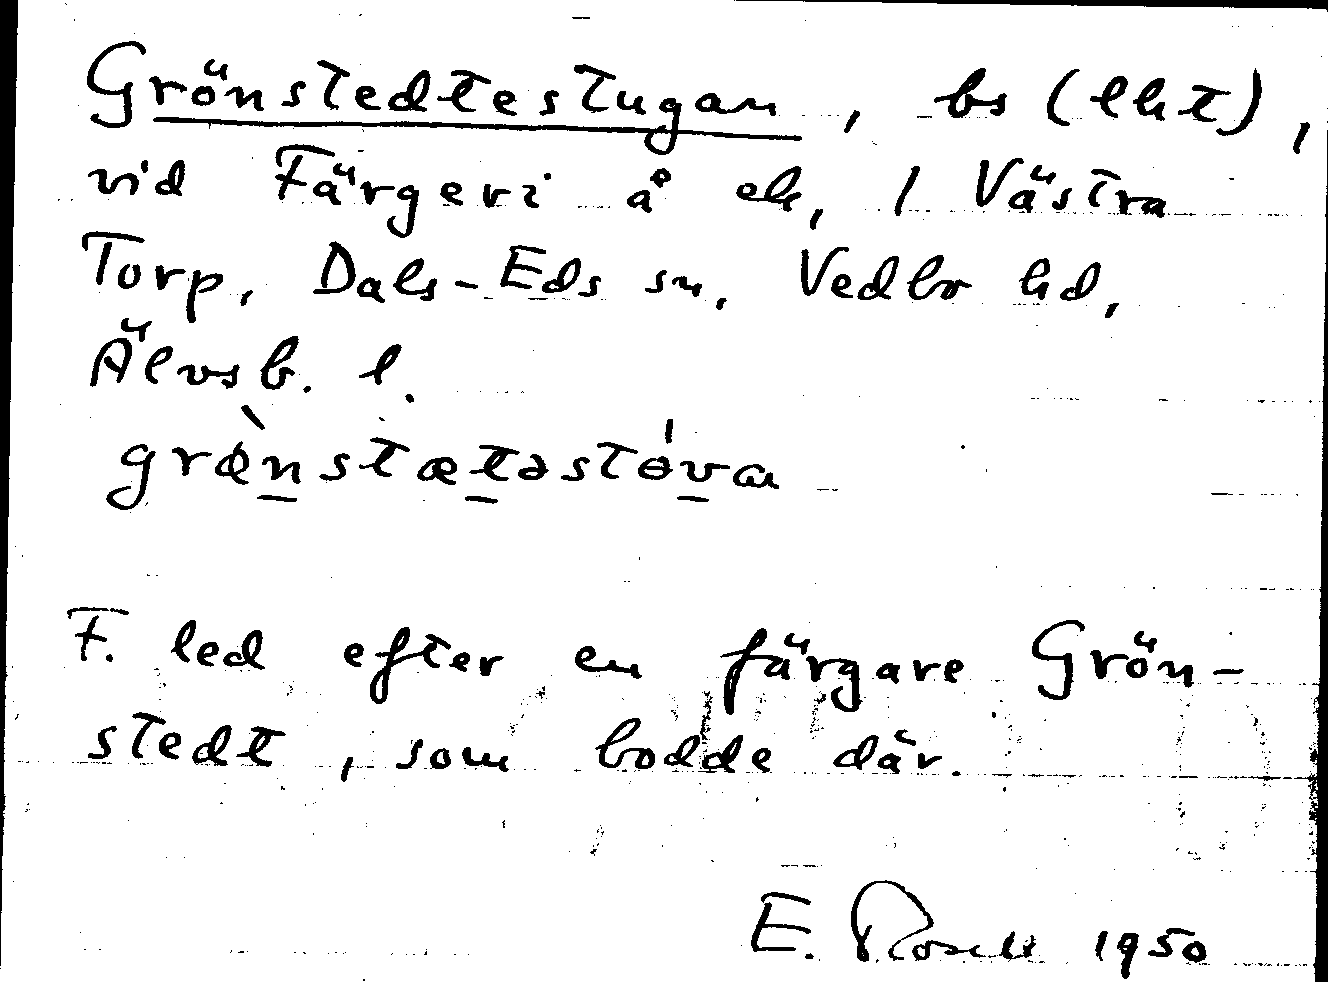 Grönstedtestugan, bs (lht),
vid Färgeri å ek, / Västra
Torp, Dals-Eds sn, Vedbo hd,
Älvsb. l.
grø̀nstætəstɵ́va
F. led efter en färgare Grön-
stedt, som bodde där.
E. Rosell 1950